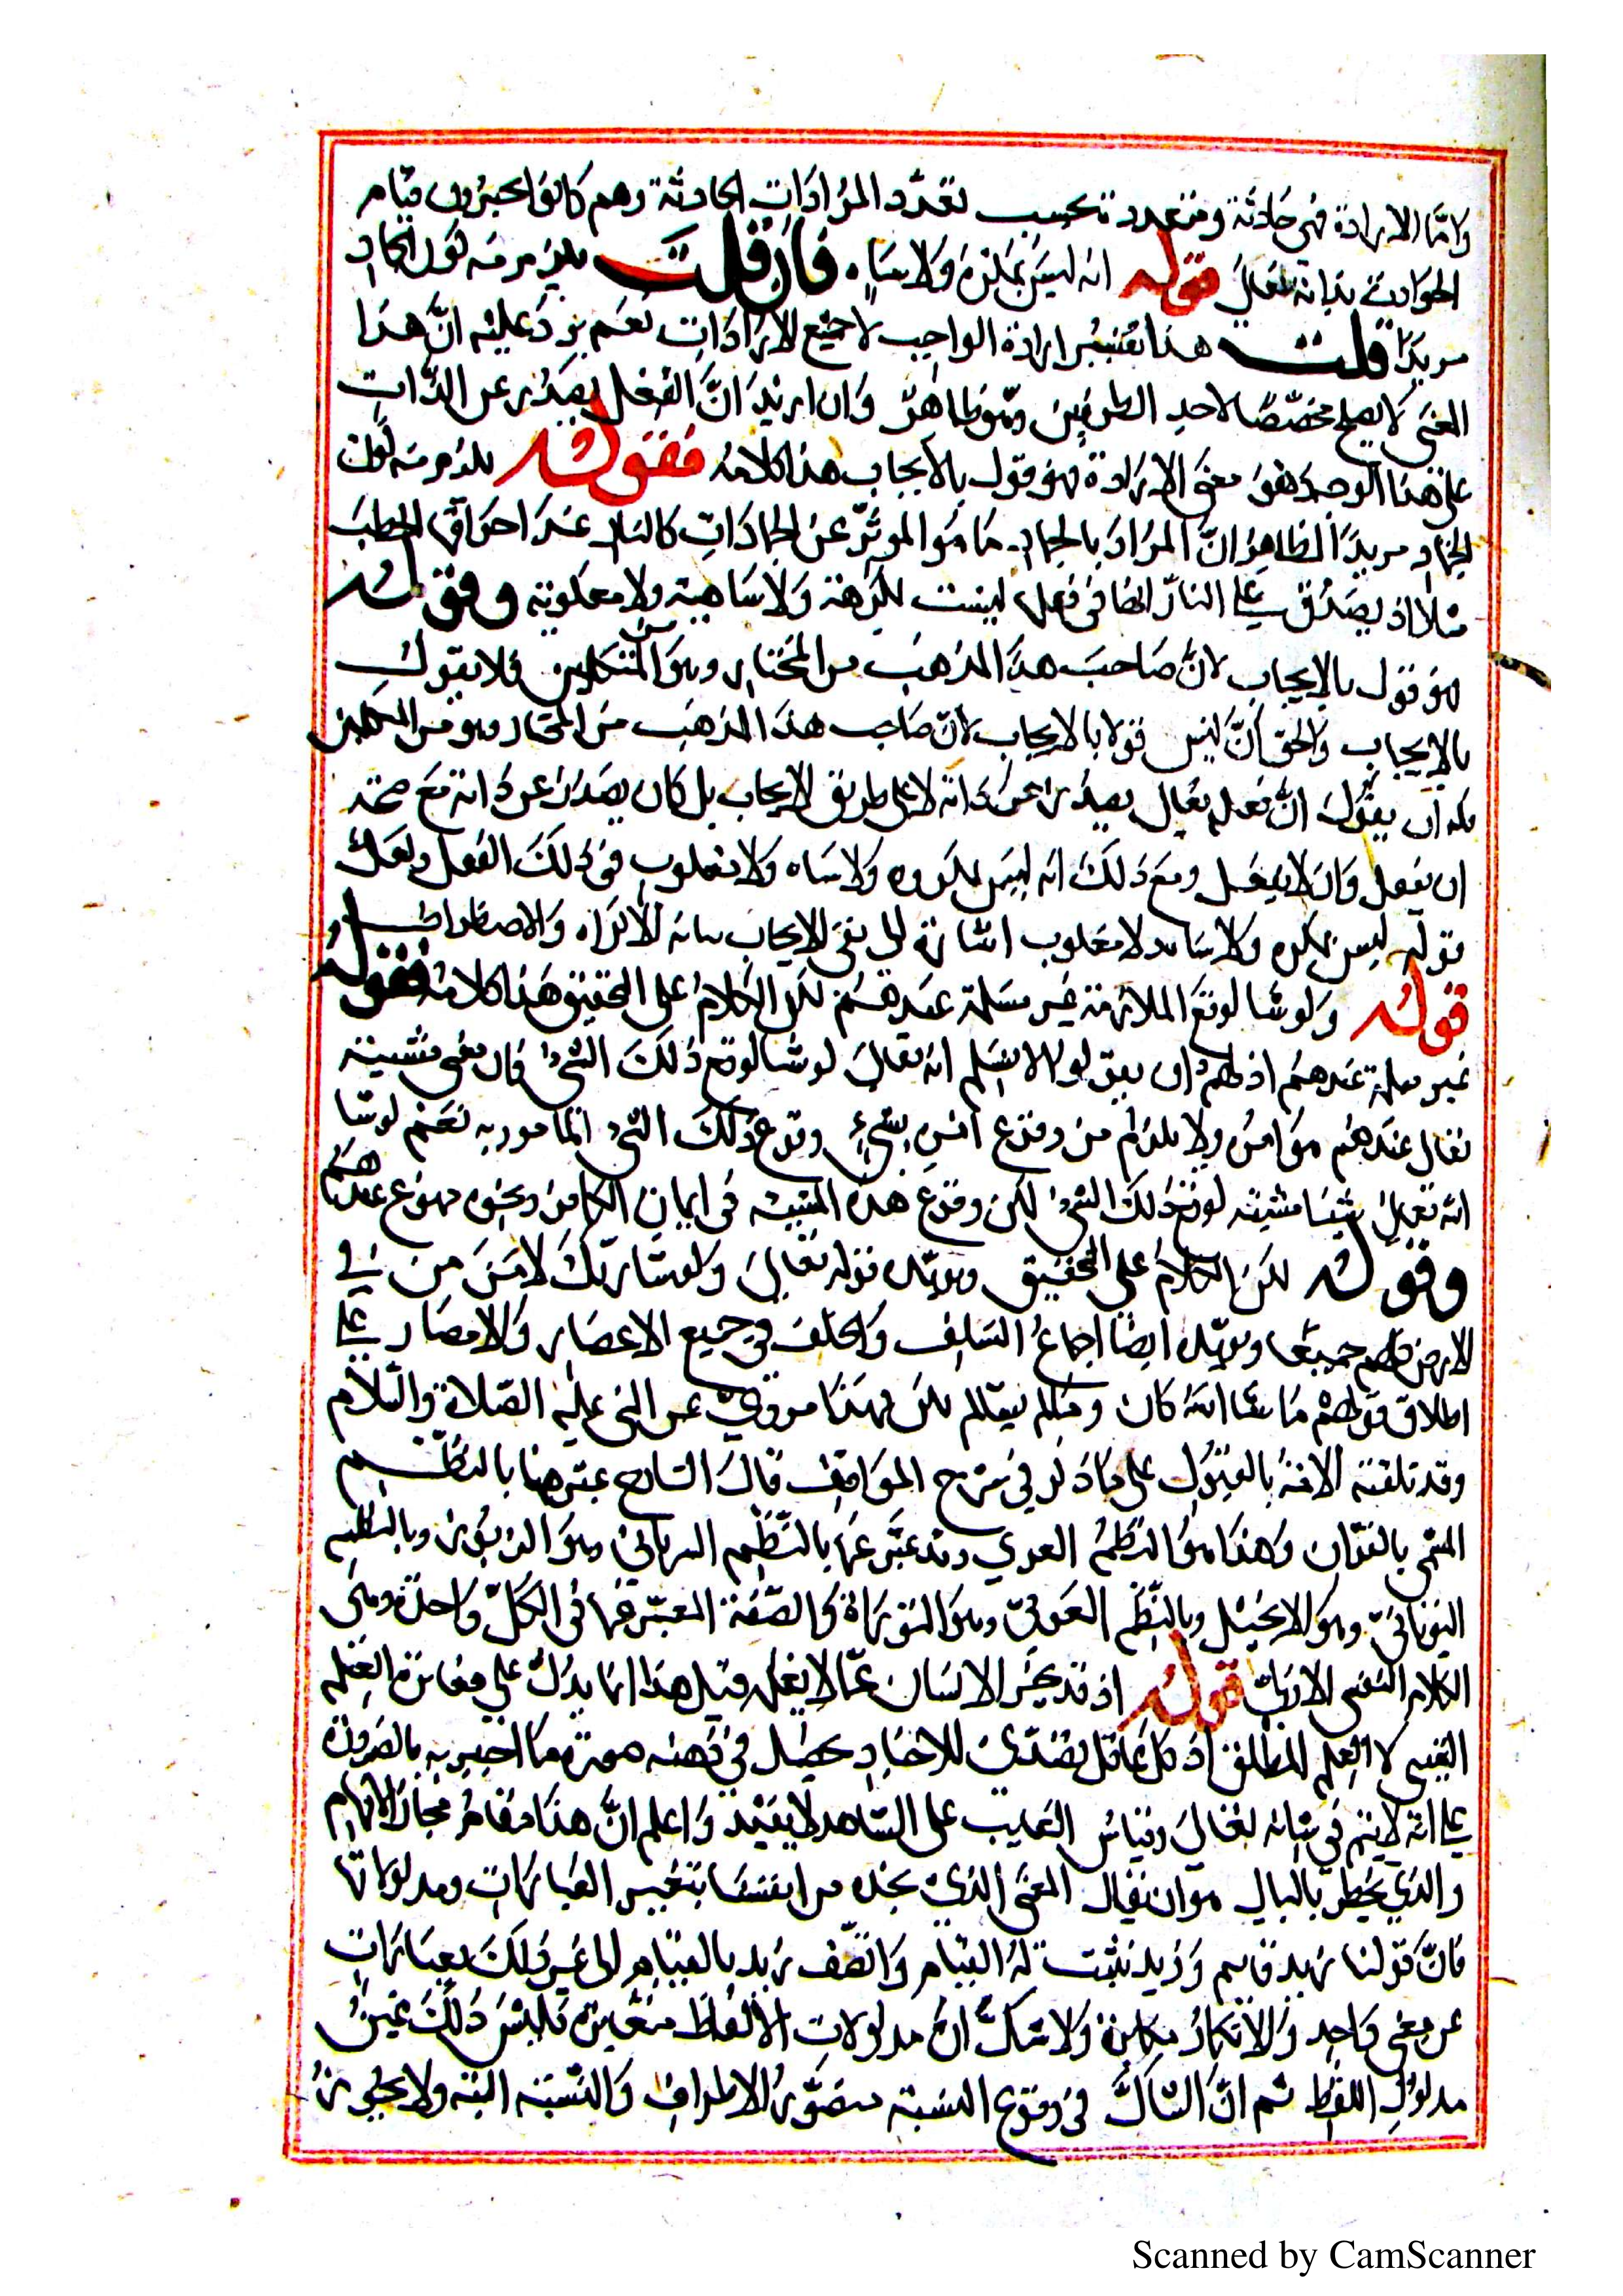 واما الارادة فهي حادثة ومتعددة بحسب تعدد المرادات الحادثة وهم كانوا يجوزون قيام
الحوادث بذاته تعالى قوله انه ليس بمكره ولا ساه فان قلت يلزم منه كون الجماد
مريدا قلت هذا تفسير ارادة الواجب لا جميع الارادات نعم يرد عليه ان هذا
المعنى لا يصلح مخصصا لاحد الطرفين وهو ظاهر وان اريد ان الفعل يصدر عن الذات
على هذا الوجه فهو معنى الارادة فهو قول بالايجاب هذا كلامه فقوله يلزم منه كون
الجماد مريدا الظاهر ان المراد بالجماد ما هو المؤثر عن الجمادات كالنار عند احراق الحطب
مثلا اذ يصدق على النار انها في فعلها ليست بمكرهة ولا ساهية ولا مغلوبة وقوله
فهو قول بالايجاب لان صاحب هذا المذهب من المختار وهو من المتكلمين فلا يقول
بالايجاب والحق ان ليس قولا بالايجاب لان صاحب هذا المذهب من المختار وهو من المتكلمين
فله ان يقول ان فعله تعالى يصدر عن ذاته لا على طريق الايجاب بل كان يصدر عن ذاته مع صحة
ان يفعل وان لا يفعل ومع ذلك انه ليس بمكروه ولا ساه ولا مغلوب في ذلك الفعل ولعل
قوله ليس بمكره ولا ساه ولا مغلوب اشارة الى نفي الايجاب لا والاضطرار
قوله ولو شا لوقع الملازمة غير مسلمة عندهم لكن الكلام على التحقيق هذا كلامه فقوله
غير مسلمة عندهم اذ لهم ان يقولوا لا نسلم انه تعالى لو شا لوقع ذلك الشيء فان معنى مشيته
تعالى عندهم هو امره ولا يلزم من وقوع امر بشيء وقوع ذلك الشيء المامور به نعم لو شا
الله تعالى شيئا مشيته لوقع ذلك الشيء لكن وقوع هذه المشية في ايمان الكافر ونحوه ممنوع عندهم
وقوله لكن الكلام على التحقيق ويؤيده قوله تعالى ولو شا ربك لامن من في
الارض كلهم جميعا ويؤيده ايضا اجماع السلف والخلف في جميع الاعصار والامصار على
اطلاق قولهم ما شا الله كان وما لم يشا لم يكن فهذا مروي عن النبي عليه الصلاة والسلام
وقد تلقته الامة بالقبول على ما ذكر في شرح المواقف قال الشارح عبر عنها بالنظم
المسمى بالقران وهذا هو النظم العربي وقد عبر عنها بالنظم السرياني وهو الزبور وبالنظم
اليوناني وهو الانجيل وبالنظم العبري وهو التوراة والصفة المعبر عنها في الكل واحدة وهي
الكلام النفسي الازلي قوله اذ قد يخبر الانسان عما لا يعلمه قيل هذا انما يدل على مغايرة العلم
اليقيني لا العلم المطلق اذ كل عاقل يتصدى للاخبار يحصل في ذهنه صورة ما اخبر به بالضرورة
على انه لا يتم في شانه تعالى وقياس الغايب على الشاهد لا يفيد واعلم ان هذا مقام مجال الافهام
والذي يخطر بالبال هو ان يقال المعنى الذي نجده من انفسنا بتغير العبارات ومدلولاتها
فان قولنا زيد قايم وزيد ثبت له القيام واتصف زيد بالقيام الى غير ذلك بعبارات
عن معنى واحد والانكار مكابرة ولا شك ان مدلولات الالفاظ متغايرة فليس ذلك غير
مدلول اللفظ ثم ان الشاك في وقوع النسبة متصور الاطراف والنسبة البتة ولا
Scanned by CamScanner